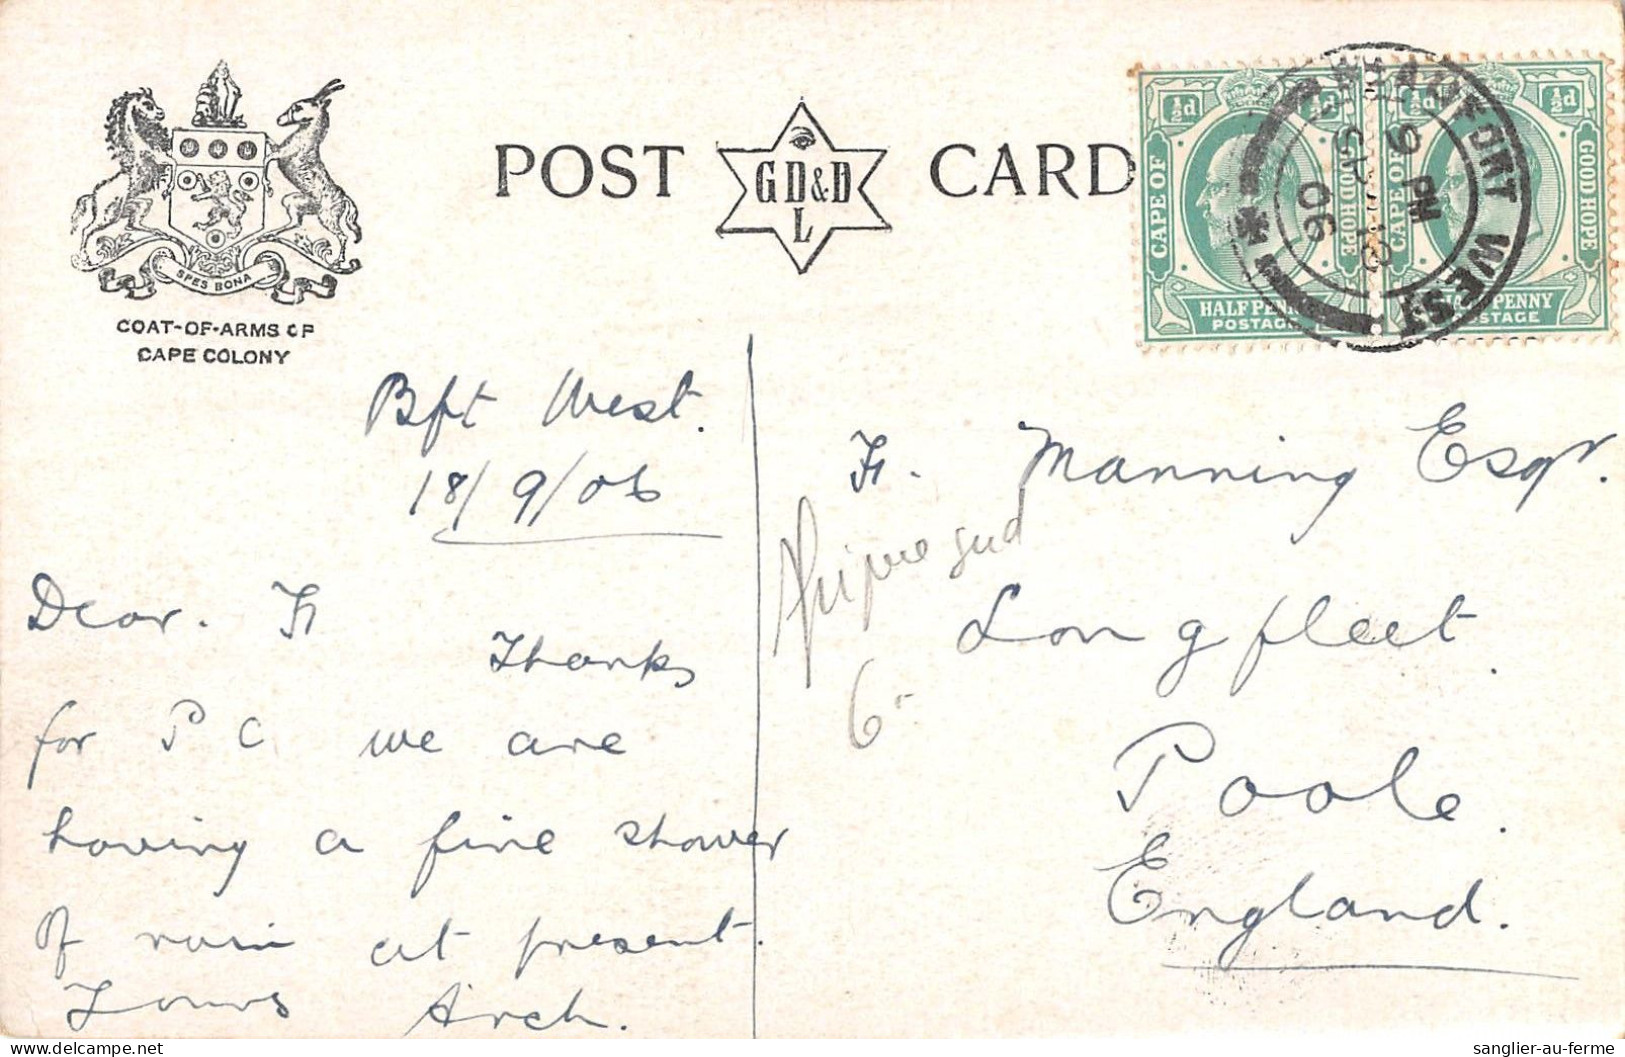 POST CARD
GD&D
L
SPES BONA
COAT-OF-ARMS OF
CAPE COLONY
½d ½d
CAPE OF GOOD HOPE
HALF PENNY
POSTAGE
½d ½d
CAPE OF GOOD HOPE
HALF PENNY
POSTAGE
BEAUFORT WEST
9 PM
SP 18
06
Bft West.
18/9/06
Dear. H
Thanks
for P C we are
having a fine shower
of rain at present.
Yours Arch.
H. Manning Esqr.
Longfleet.
Poole.
England.
6-
sanglier-au-ferme